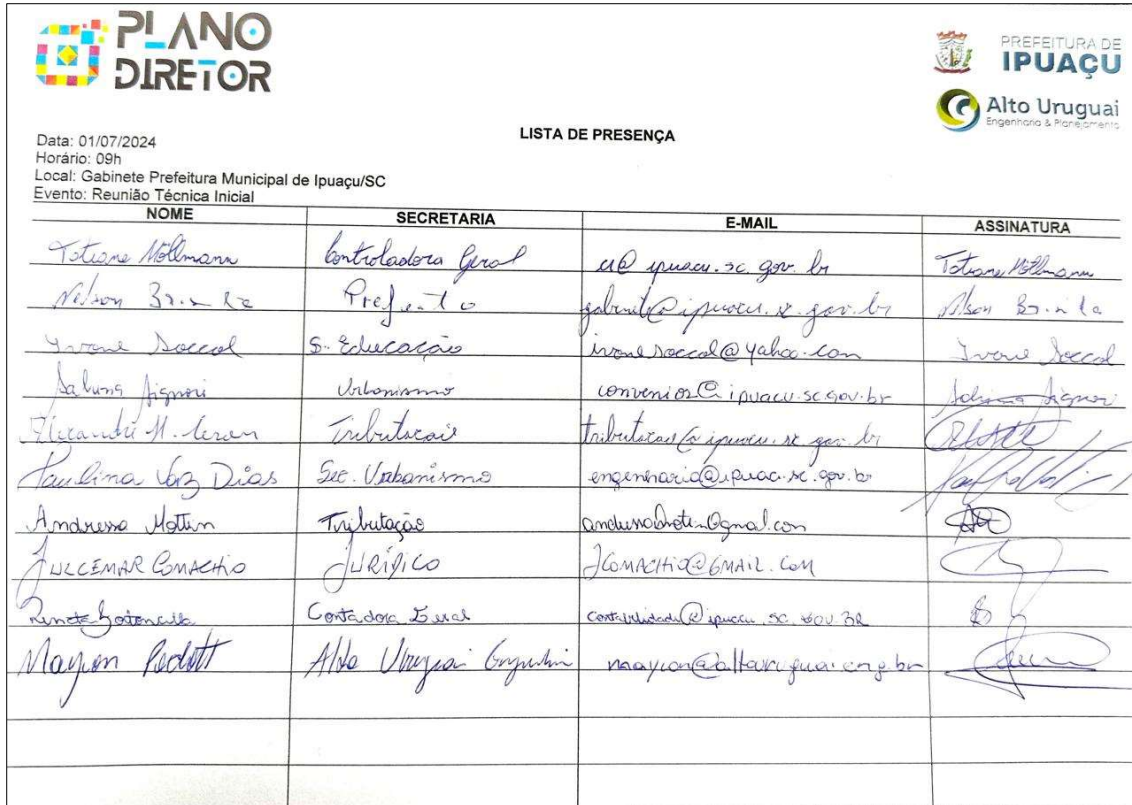 PLANO
DIRETOR
PREFEITURA DE
IPUAÇU
Alto Uruguai
Engenharia & Planejamento
LISTA DE PRESENÇA
Data: 01/07/2024
Horário: 09h
Local: Gabinete Prefeitura Municipal de Ipuaçu/SC
Evento: Reunião Técnica Inicial
NOME SECRETARIA E-MAIL ASSINATURA
Tatiane Mollmann Controladora Geral @ipuacu.sc.gov.br Tatiane Mollmann
Nelson Prefeito gabinete@ipuacu.sc.gov.br
Ivone Soccol S. Educação ivonesoccol@yahoo.com Ivone Soccol
Signori Urbanismo convenios@ipuacu.sc.gov.br Signori
Tributacao tributacao@ipuacu.sc.gov.br
Paulina Vaz Dias Sec. Urbanismo engenharia@ipuacu.sc.gov.br
Andressa Tributação
JULCEMAR COMACHIO JURÍDICO JCOMACHIO@GMAIL.COM
Contadora Geral contabilidade@ipuacu.sc.GOV.BR
Maycon Pedott Alto Uruguai maycon@altouruguai.eng.br